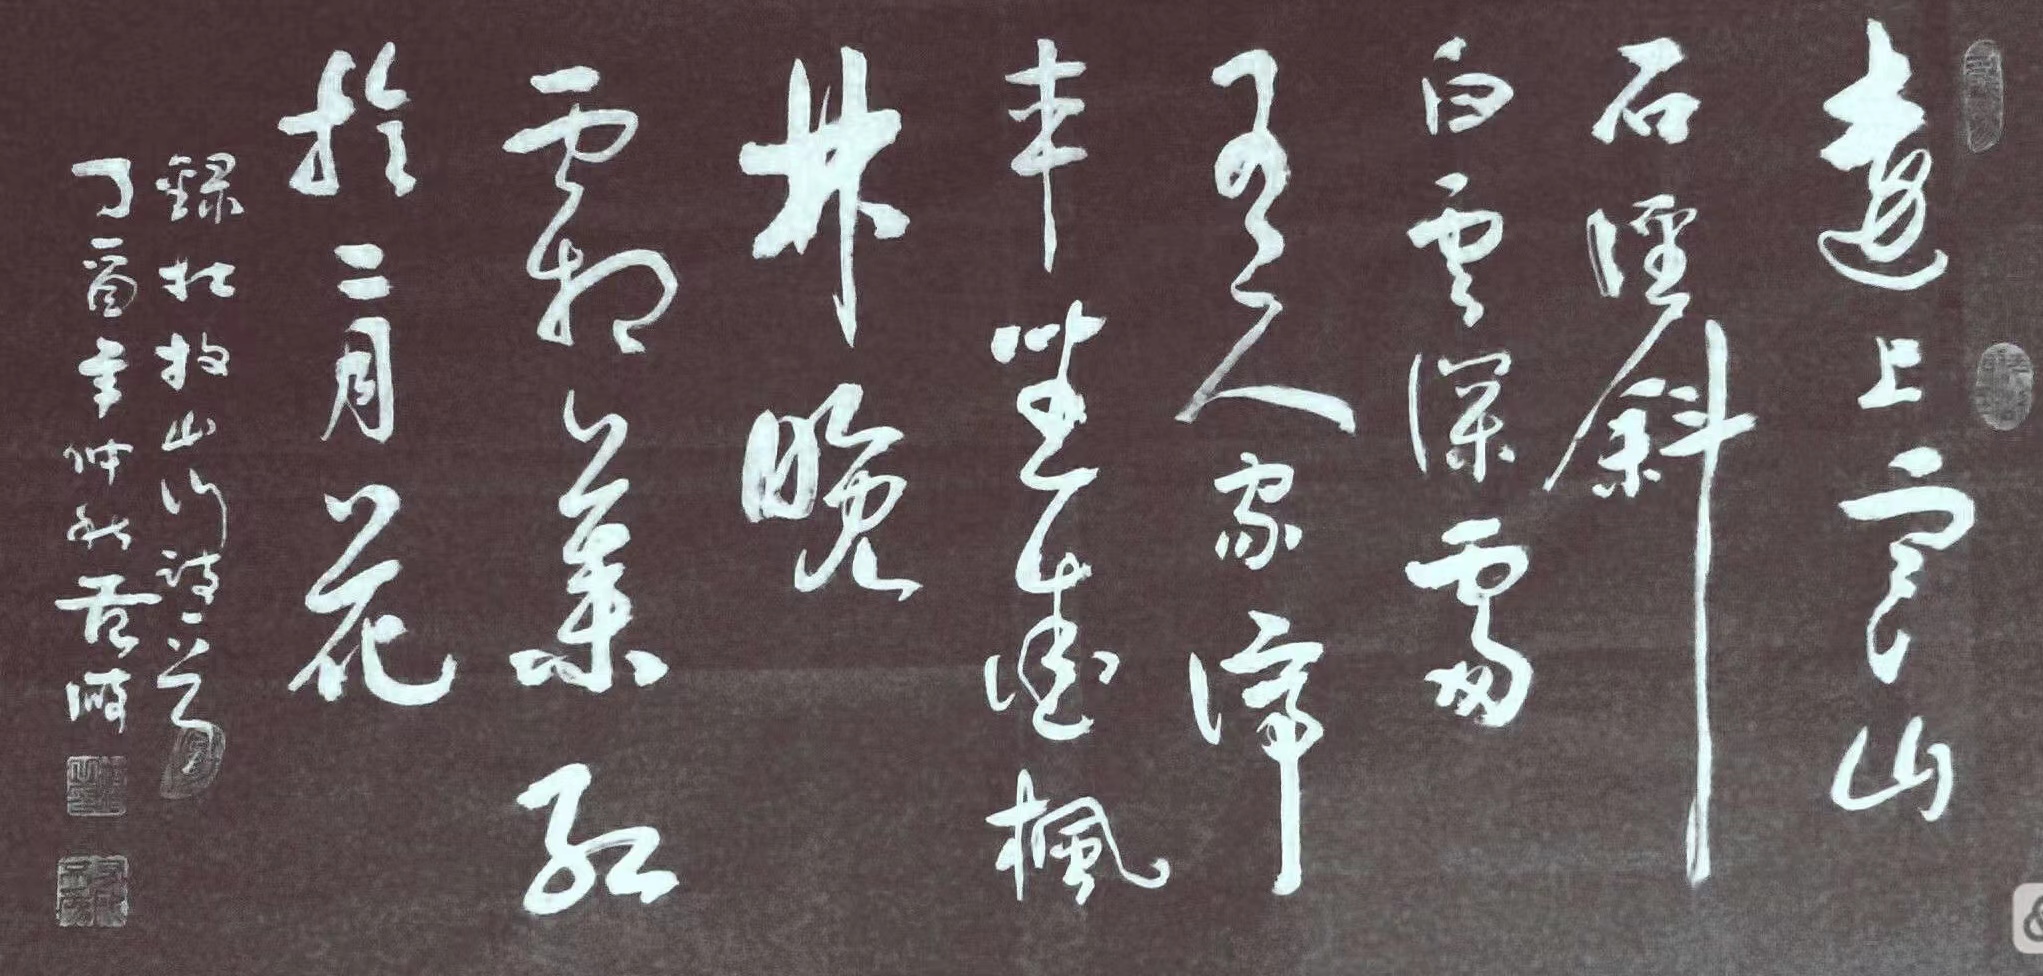 遠上寒山
石徑斜
白雲深處
有人家停
車坐愛楓
林晚
霜葉紅
於二月花
錄杜牧山行詩一首
丁酉年仲秋